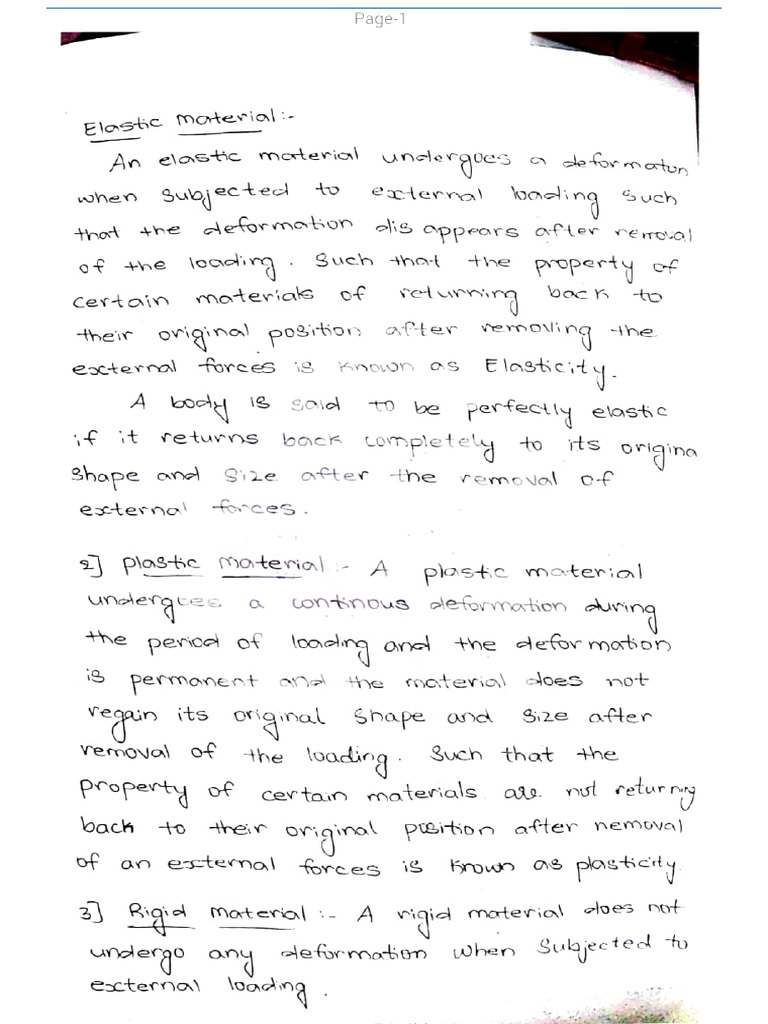 Page-1
Elastic material:-
An elastic material undergoes a deformaton
when subjected to external loading such
that the deformation dis appears after removal
of the loading. Such that the property of
certain materials of returning back to
their original position after removing the
external forces is known as Elasticity.
A body is said to be perfectly elastic
if it returns back completely to its origina
shape and size after the removal of
external forces.
2] Plastic material:- A plastic material
undergoes a continous deformation during
the period of loading and the deformation
is permanent and the material does not
regain its original shape and size after
removal of the loading. Such that the
property of certain materials are not returning
back to their original position after nemoval
of an external forces is known as plasticity.
3] Rigid material:- A rigid material does not
undergo any deformation when subjected to
external loading.